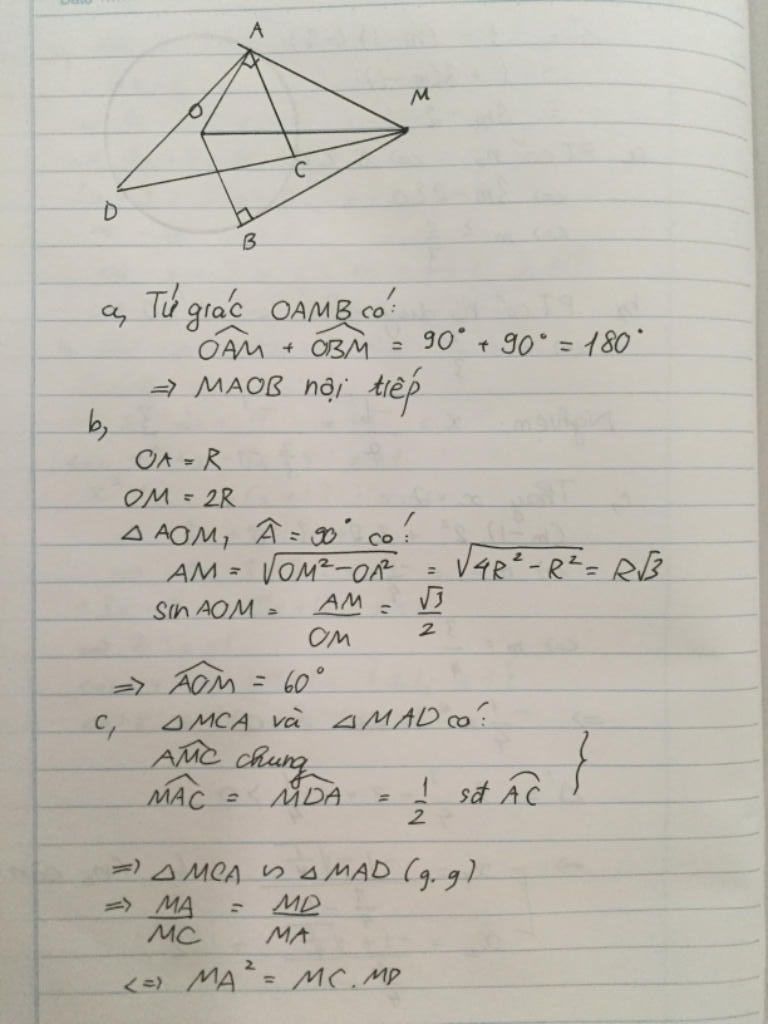 A
M
O
C
D
B
a, Tứ giác OAMB có:
\widehat{OAM} + \widehat{OBM} = 90° + 90° = 180°
=> MAOB nội tiếp
b,
OA = R
OM = 2R
△AOM, \widehat{A} = 90° có:
AM = √(OM² - OA²) = √(4R² - R²) = R√3
sin AOM = AM/OM = √3/2
=> \widehat{AOM} = 60°
c, △MCA và △MAD có:
\widehat{AMC} chung
\widehat{MAC} = \widehat{MDA} = 1/2 sđ \widehat{AC} }
=> △MCA ∽ △MAD (g.g)
=> MA/MC = MD/MA
<=> MA² = MC.MD